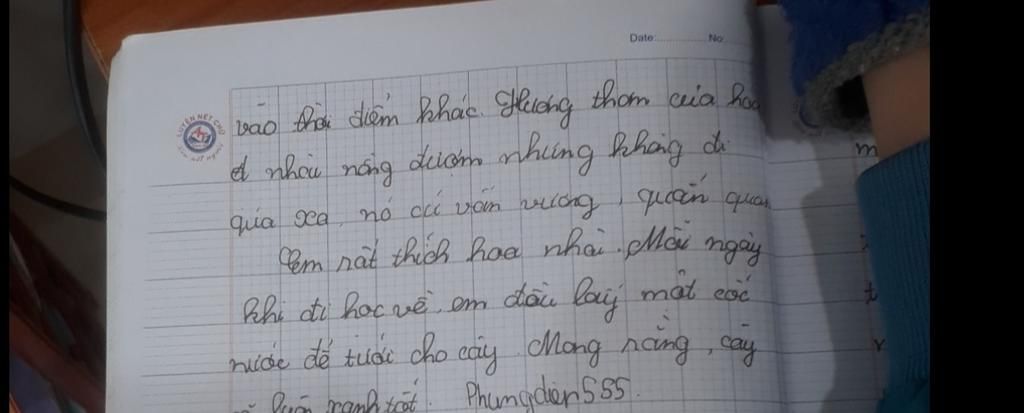 Date: No
LUYỆN NÉT CHỮ
vào thời điểm khác. Hương thơm của hoa
nhài nồng đượm nhưng không đi
quá xa, nó cứ vấn vương, quấn quan
Em rất thích hoa nhài. Mỗi ngày
khi đi học về, em đều lấy một cốc
nước để tưới cho cây. Mong rằng, cây
luôn xanh tốt. Phungdien555.
m
t
r